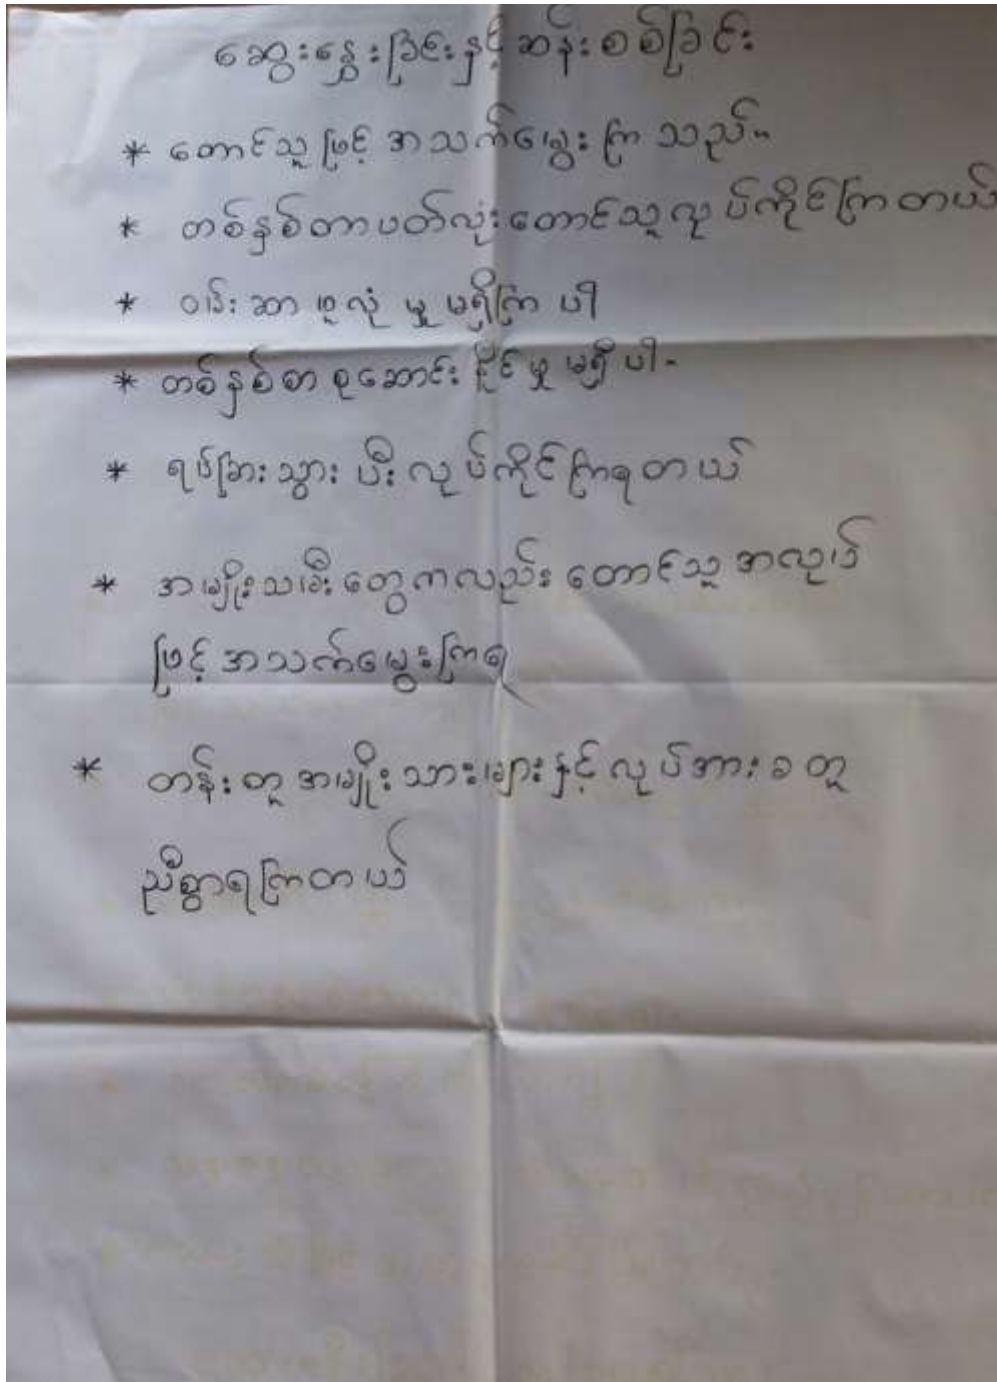 ဆွေးနွေးခြင်းနှင့် ဆန်းစစ်ခြင်း
* တောင်သူဖြင့် အသက်မွေးကြသည်။
* တစ်နှစ်တာပတ်လုံးတောင်သူလုပ်ကိုင်ကြတယ်
* ဝမ်းစာဖူလုံမှုမရှိကြပါ
* တစ်နှစ်စာစုဆောင်းနိုင်မှုမရှိပါ-
* ရပ်ခြားသွားပီးလုပ်ကိုင်ကြရတယ်
* အမျိုးသမီးတွေကလည်းတောင်သူအလုပ်
ဖြင့်အသက်မွေးကြရ
* တန်းတူအမျိုးသားများနှင့်လုပ်အားခတူ
ညီစွာရကြတယ်